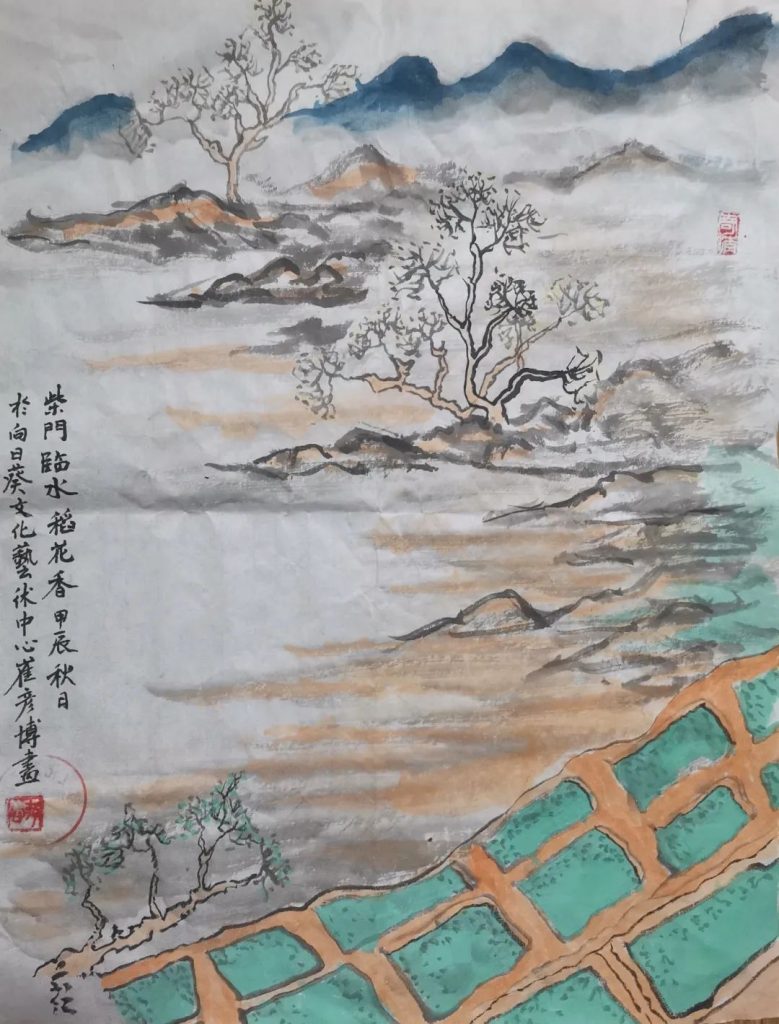 柴門臨水稻花香 甲辰秋日
於向日葵文化藝术中心崔彦博畫